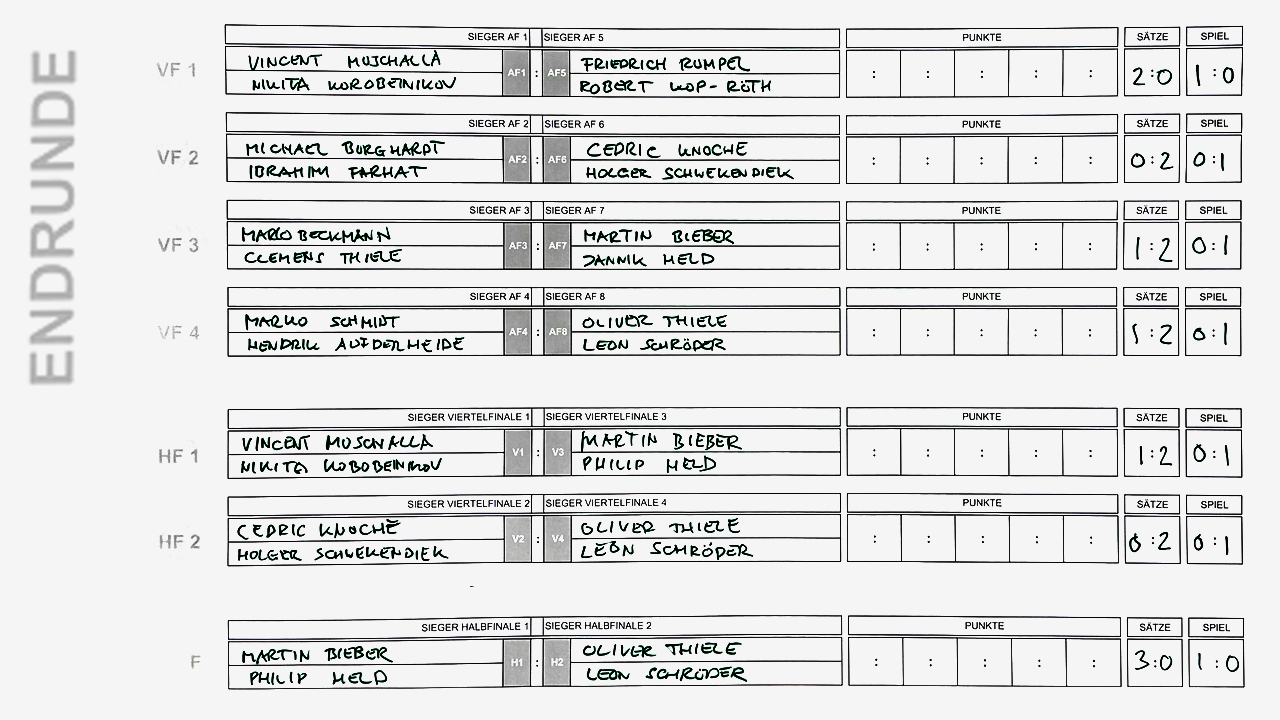 ENDRUNDE
SIEGER AF 1 SIEGER AF 5 PUNKTE SÄTZE SPIEL
VF 1 VINCENT MUSCHALLA AF1 : AF5 FRIEDRICH RUMPEL : : : : : 2:0 1:0
NIKITA KOROBEINIKOV ROBERT KOP-RÖTH
SIEGER AF 2 SIEGER AF 6 PUNKTE SÄTZE SPIEL
VF 2 MICHAEL BURGHARDT AF2 : AF6 CEDRIC KNOCHE : : : : : 0:2 0:1
IBRAHIM FARHAT HOLGER SCHWEKENDIEK
SIEGER AF 3 SIEGER AF 7 PUNKTE SÄTZE SPIEL
VF 3 MARKO BECKMANN AF3 : AF7 MARTIN BIEBER : : : : : 1:2 0:1
CLEMENS THIELE JANNIK HELD
SIEGER AF 4 SIEGER AF 8 PUNKTE SÄTZE SPIEL
VF 4 MARKO SCHMIDT AF4 : AF8 OLIVER THIELE : : : : : 1:2 0:1
HENDRIK AUFDERHEIDE LEON SCHRÖDER
SIEGER VIERTELFINALE 1 SIEGER VIERTELFINALE 3 PUNKTE SÄTZE SPIEL
HF 1 VINCENT MUSCHALLA V1 : V3 MARTIN BIEBER : : : : : 1:2 0:1
NIKITA KOBOBEINIKOV PHILIP HELD
SIEGER VIERTELFINALE 2 SIEGER VIERTELFINALE 4 PUNKTE SÄTZE SPIEL
HF 2 CEDRIC KNOCHE V2 : V4 OLIVER THIELE : : : : : 0:2 0:1
HOLGER SCHWEKENDIEK LEON SCHRÖDER
SIEGER HALBFINALE 1 SIEGER HALBFINALE 2 PUNKTE SÄTZE SPIEL
F MARTIN BIEBER H1 : H2 OLIVER THIELE : : : : : 3:0 1:0
PHILIP HELD LEON SCHRÖDER